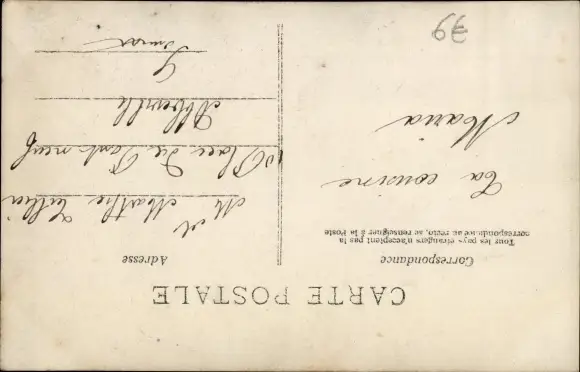 CARTE POSTALE
Correspondance
Tous les pays étrangers n'acceptent pas la
correspondance au recto, se renseigner à la Poste
Ta cousine
Maria
Adresse
Place du Pont neuf
Abbeville
Somme
6€